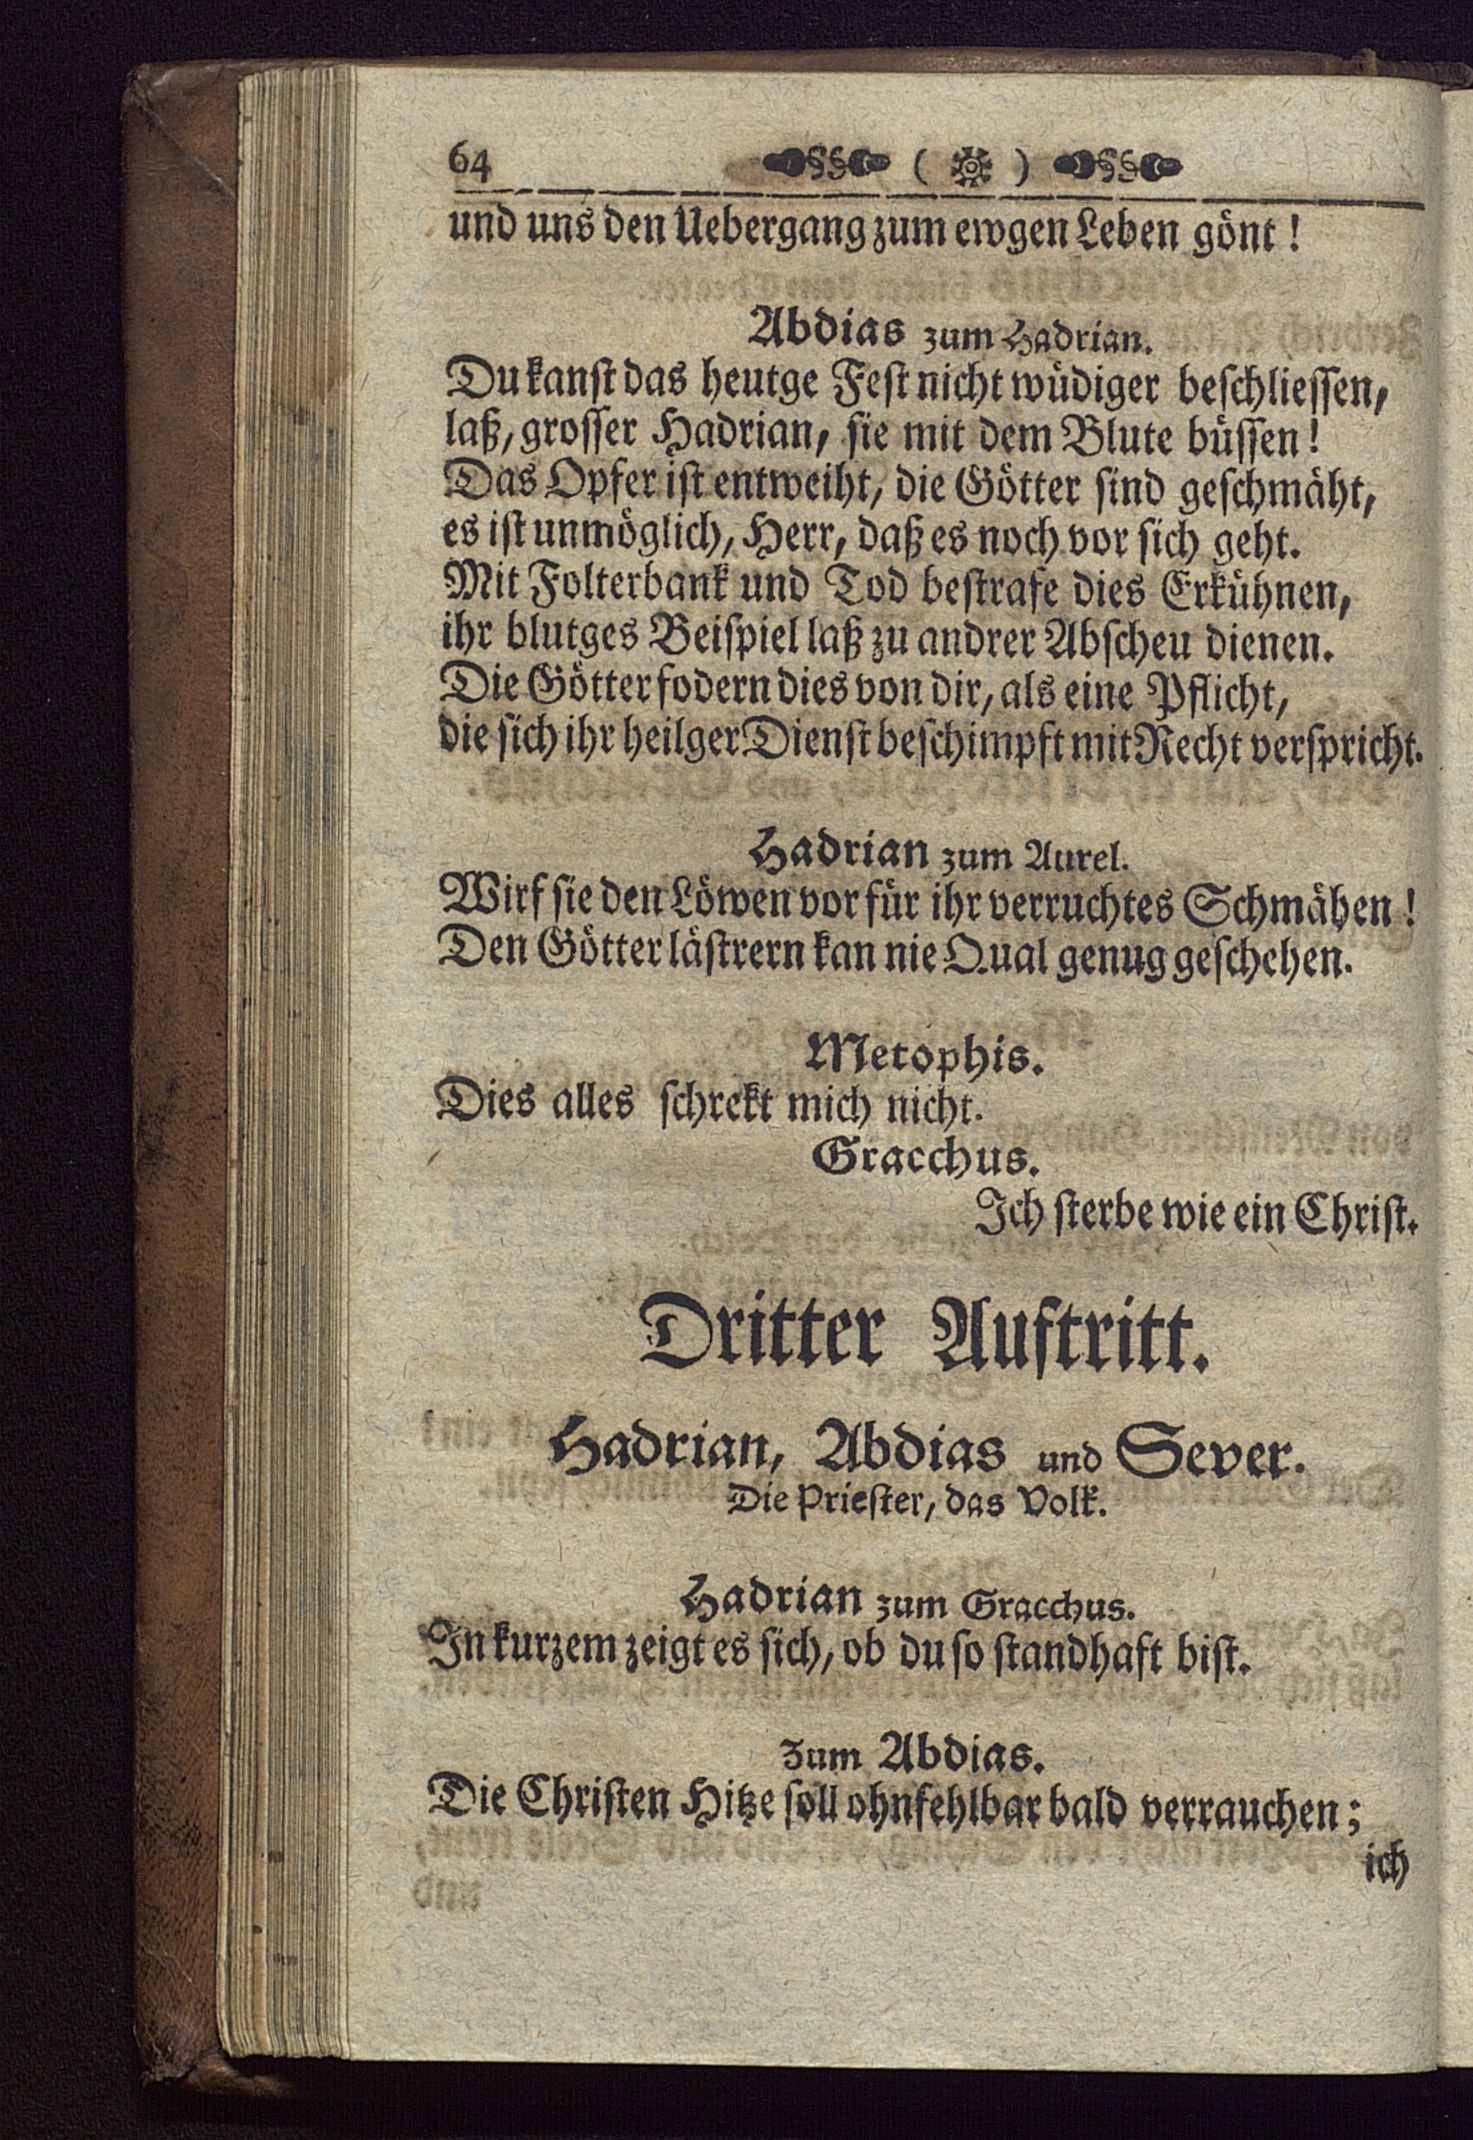 64 ( )
und uns den Uebergang zum ewgen Leben gönt!
Abdias zum Hadrian.
Du kanst das heutge Fest nicht wüdiger beschliessen,
laß, grosser Hadrian, sie mit dem Blute büssen!
Das Opfer ist entweiht, die Götter sind geschmäht,
es ist unmöglich, Herr, daß es noch vor sich geht.
Mit Folterbank und Tod bestrafe dies Erkühnen,
ihr blutges Beispiel laß zu andrer Abscheu dienen.
Die Götter fodern dies von dir, als eine Pflicht,
die sich ihr heilger Dienst beschimpft mit Recht verspricht.
Hadrian zum Aurel.
Wirf sie den Löwen vor für ihr verruchtes Schmähen!
Den Götterlästrern kan nie Qual genug geschehen.
Metophis.
Dies alles schrekt mich nicht.
Gracchus.
Ich sterbe wie ein Christ.
Dritter Auftritt.
Hadrian, Abdias und Sever.
Die Priester, das Volk.
Hadrian zum Gracchus.
In kurzem zeigt es sich, ob du so standhaft bist.
Zum Abdias.
Die Christen Hitze soll ohnfehlbar bald verrauchen;
ich